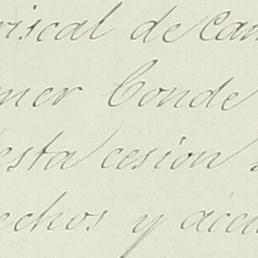 riscal de Cam
mer Conde
esta cesion
echos y acci